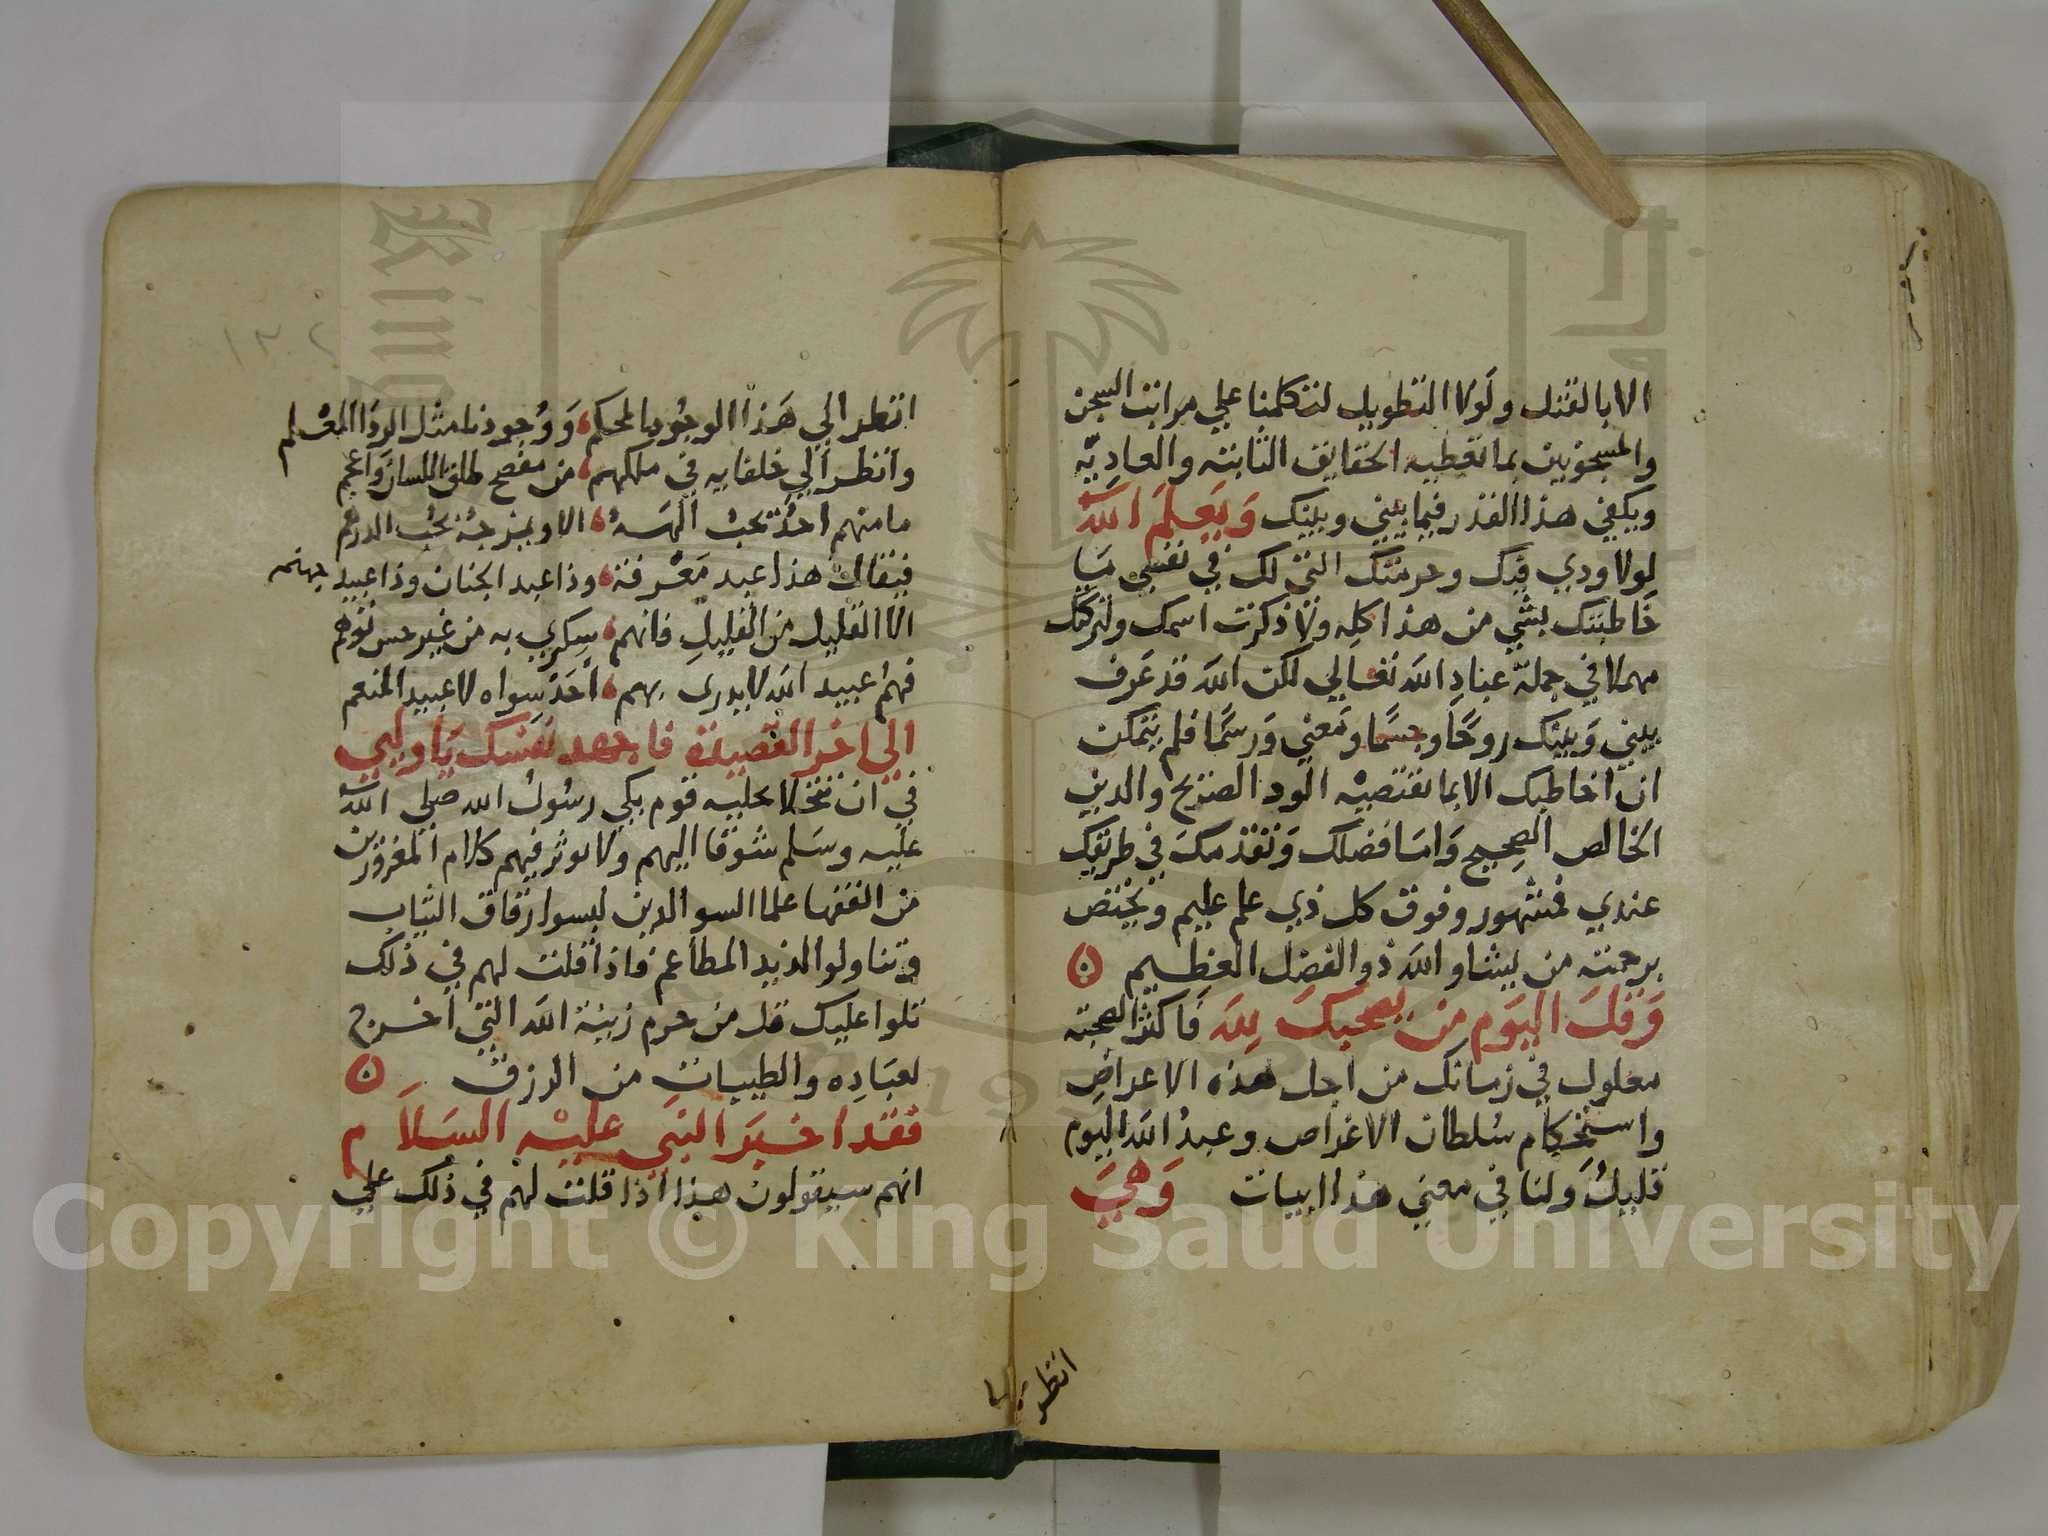 الا بالقتل ولولا التطويل لتكلمنا على مراتب السجن
والمسجونين بما تعطيه الحقايق الثابته والعاديّه
ويكفي هذا القدر فيما بيني وبينك وَيَعلَم الله
لولا ودي فيك وحرمتك التي لك في نفسي مَا
خَاطبتك بشي من هذا كله ولا ذكرت اسمك ولتركتك
مهملا في جملة عباد الله تعالى لكن الله قد عَرف
بيني وَبينك روحًا وجسمًا ومَعنى وَرسمًا فلم يتمكن
ان اخاطبك الا بما تقتضيه الود الصريح والدين
الخالص الصحيح وَامَا فضلك وَتقدمك في طريقك
عندي فمشهور وفوق كل ذي علم عليم ويختص
برحمته من يشا والله ذو الفضل العظيم ۞
وَقلَ اليَوم من يصحبكَ للهَ فاكثر الصحبة
معلول في زمانك من اجل هذه الاعراض
واستحكام سُلطان الاغراض وعبدُ الله اليوم
قليلُ وَلنا في معنى هذا ابيات وَهيَ
انظر الي
انظر الي هَذا الوجُود المحكم وَوجُودنا مثل الردَا المعْلم
وانظر الي خلفايه في ملكهم من مفصح طلق اللسان وَاعجم
ما منهم احدٌ يحبُ الهَهُ الا ويمزجهُ بحُب الدرهم
فيقال هذا عبد مَعْرفة وذا عبد الجنان وذا عبيد جهنم
الا القليل من القليلِ فانهم سكرى به من غير حس توهم
فهمُ عبيد الله لا يدرى بهم احَدٌ سواه لا عبيد المنعم
الي اخر القصيدة فاجهد نفسَك يَا وليي
في ان تتخلا بحليه قوم بكى رسُولُ الله صلى الله
عليه وسَلم شوقا اليهم ولا يوثر فيهم كلام المغرورين
من الفقها علما السو الدين لبسوا رقاق الثياب
وتناولوا لذيد المطاعم فاذا قلت لهم في ذلك
تلوا عليك قل من حرم زينة الله التي اخرج
لعبَاده والطيبات من الرزق ۞
فقد اخبَر النبَي عليْه السَلاَم
انهم سيقولون هذا اذا قلت لهم في ذلك على
Copyright © King Saud University